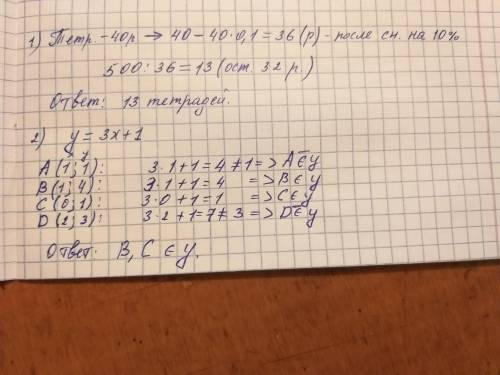 1) Тетр. - 40р. → 40 - 40·0,1 = 36 (р) - после сн. на 10%
500 : 36 = 13 (ост. 32 р.)
Ответ: 13 тетрадей.
2) y = 3x + 1
x y
A (1; 1): 3·1+1=4≠1 => A ∉ y
B (1; 4): 3·1+1=4 => B ∈ y
C (0; 1): 3·0+1=1 => C ∈ y
D (2; 3): 3·2+1=7≠3 => D ∉ y
Ответ: B, C ∈ y.